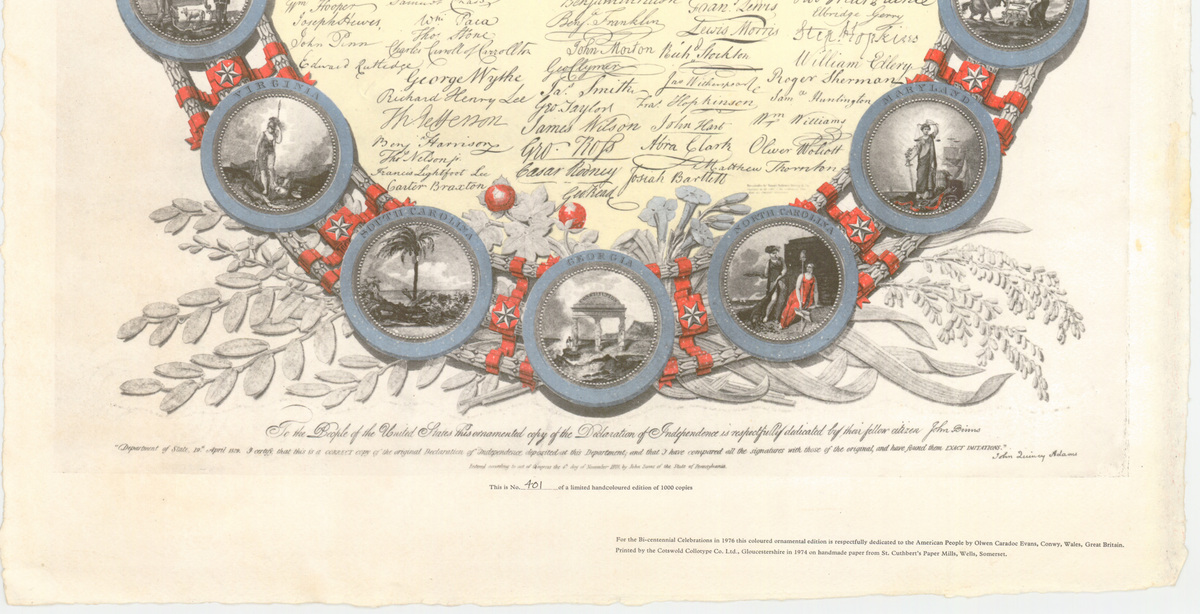 Wm Hooper
Joseph Hewes,
John Penn
Edward Rutledge
Wm Paca
Thos Stone
Charles Carroll of Carrollton
George Wythe
Richard Henry Lee
Th Jefferson
Benja Harrison
Thos Nelson jr.
Francis Lightfoot Lee
Carter Braxton
Benja Franklin
John Morton
Geo Clymer
Jas. Smith
Geo. Taylor
James Wilson
Geo. Ross
Caesar Rodney
Geo Read
Fran. Lewis
Lewis Morris
Richd Stockton
Jno Witherspoon
Fras. Hopkinson
John Hart
Abra Clark
Josiah Bartlett
Elbridge Gerry
Step. Hopkins
William Ellery
Roger Sherman
Samel Huntington
Wm Williams
Oliver Wolcott
Matthew Thornton
VIRGINIA
MARYLAND
SOUTH CAROLINA
NORTH CAROLINA
GEORGIA
To the People of the United States this ornamented copy of the Declaration of Independence is respectfully dedicated by their fellow citizen John Binns
"Department of State, 19th April 1819. I certify that this is a CORRECT copy of the original Declaration of Independence, deposited at this Department; and that I have compared all the signatures with those of the original, and have found them EXACT IMITATIONS."
John Quincy Adams
Entered according to act of Congress the 4th day of November 1818, by John Binns of the State of Pennsylvania.
This is No. 401 of a limited handcoloured edition of 1000 copies
For the Bi-centennial Celebrations in 1976 this coloured ornamental edition is respectfully dedicated to the American People by Olwen Caradoc Evans, Conwy, Wales, Great Britain.
Printed by the Cotswold Collotype Co. Ltd., Gloucestershire in 1974 on handmade paper from St. Cuthbert's Paper Mills, Wells, Somerset.